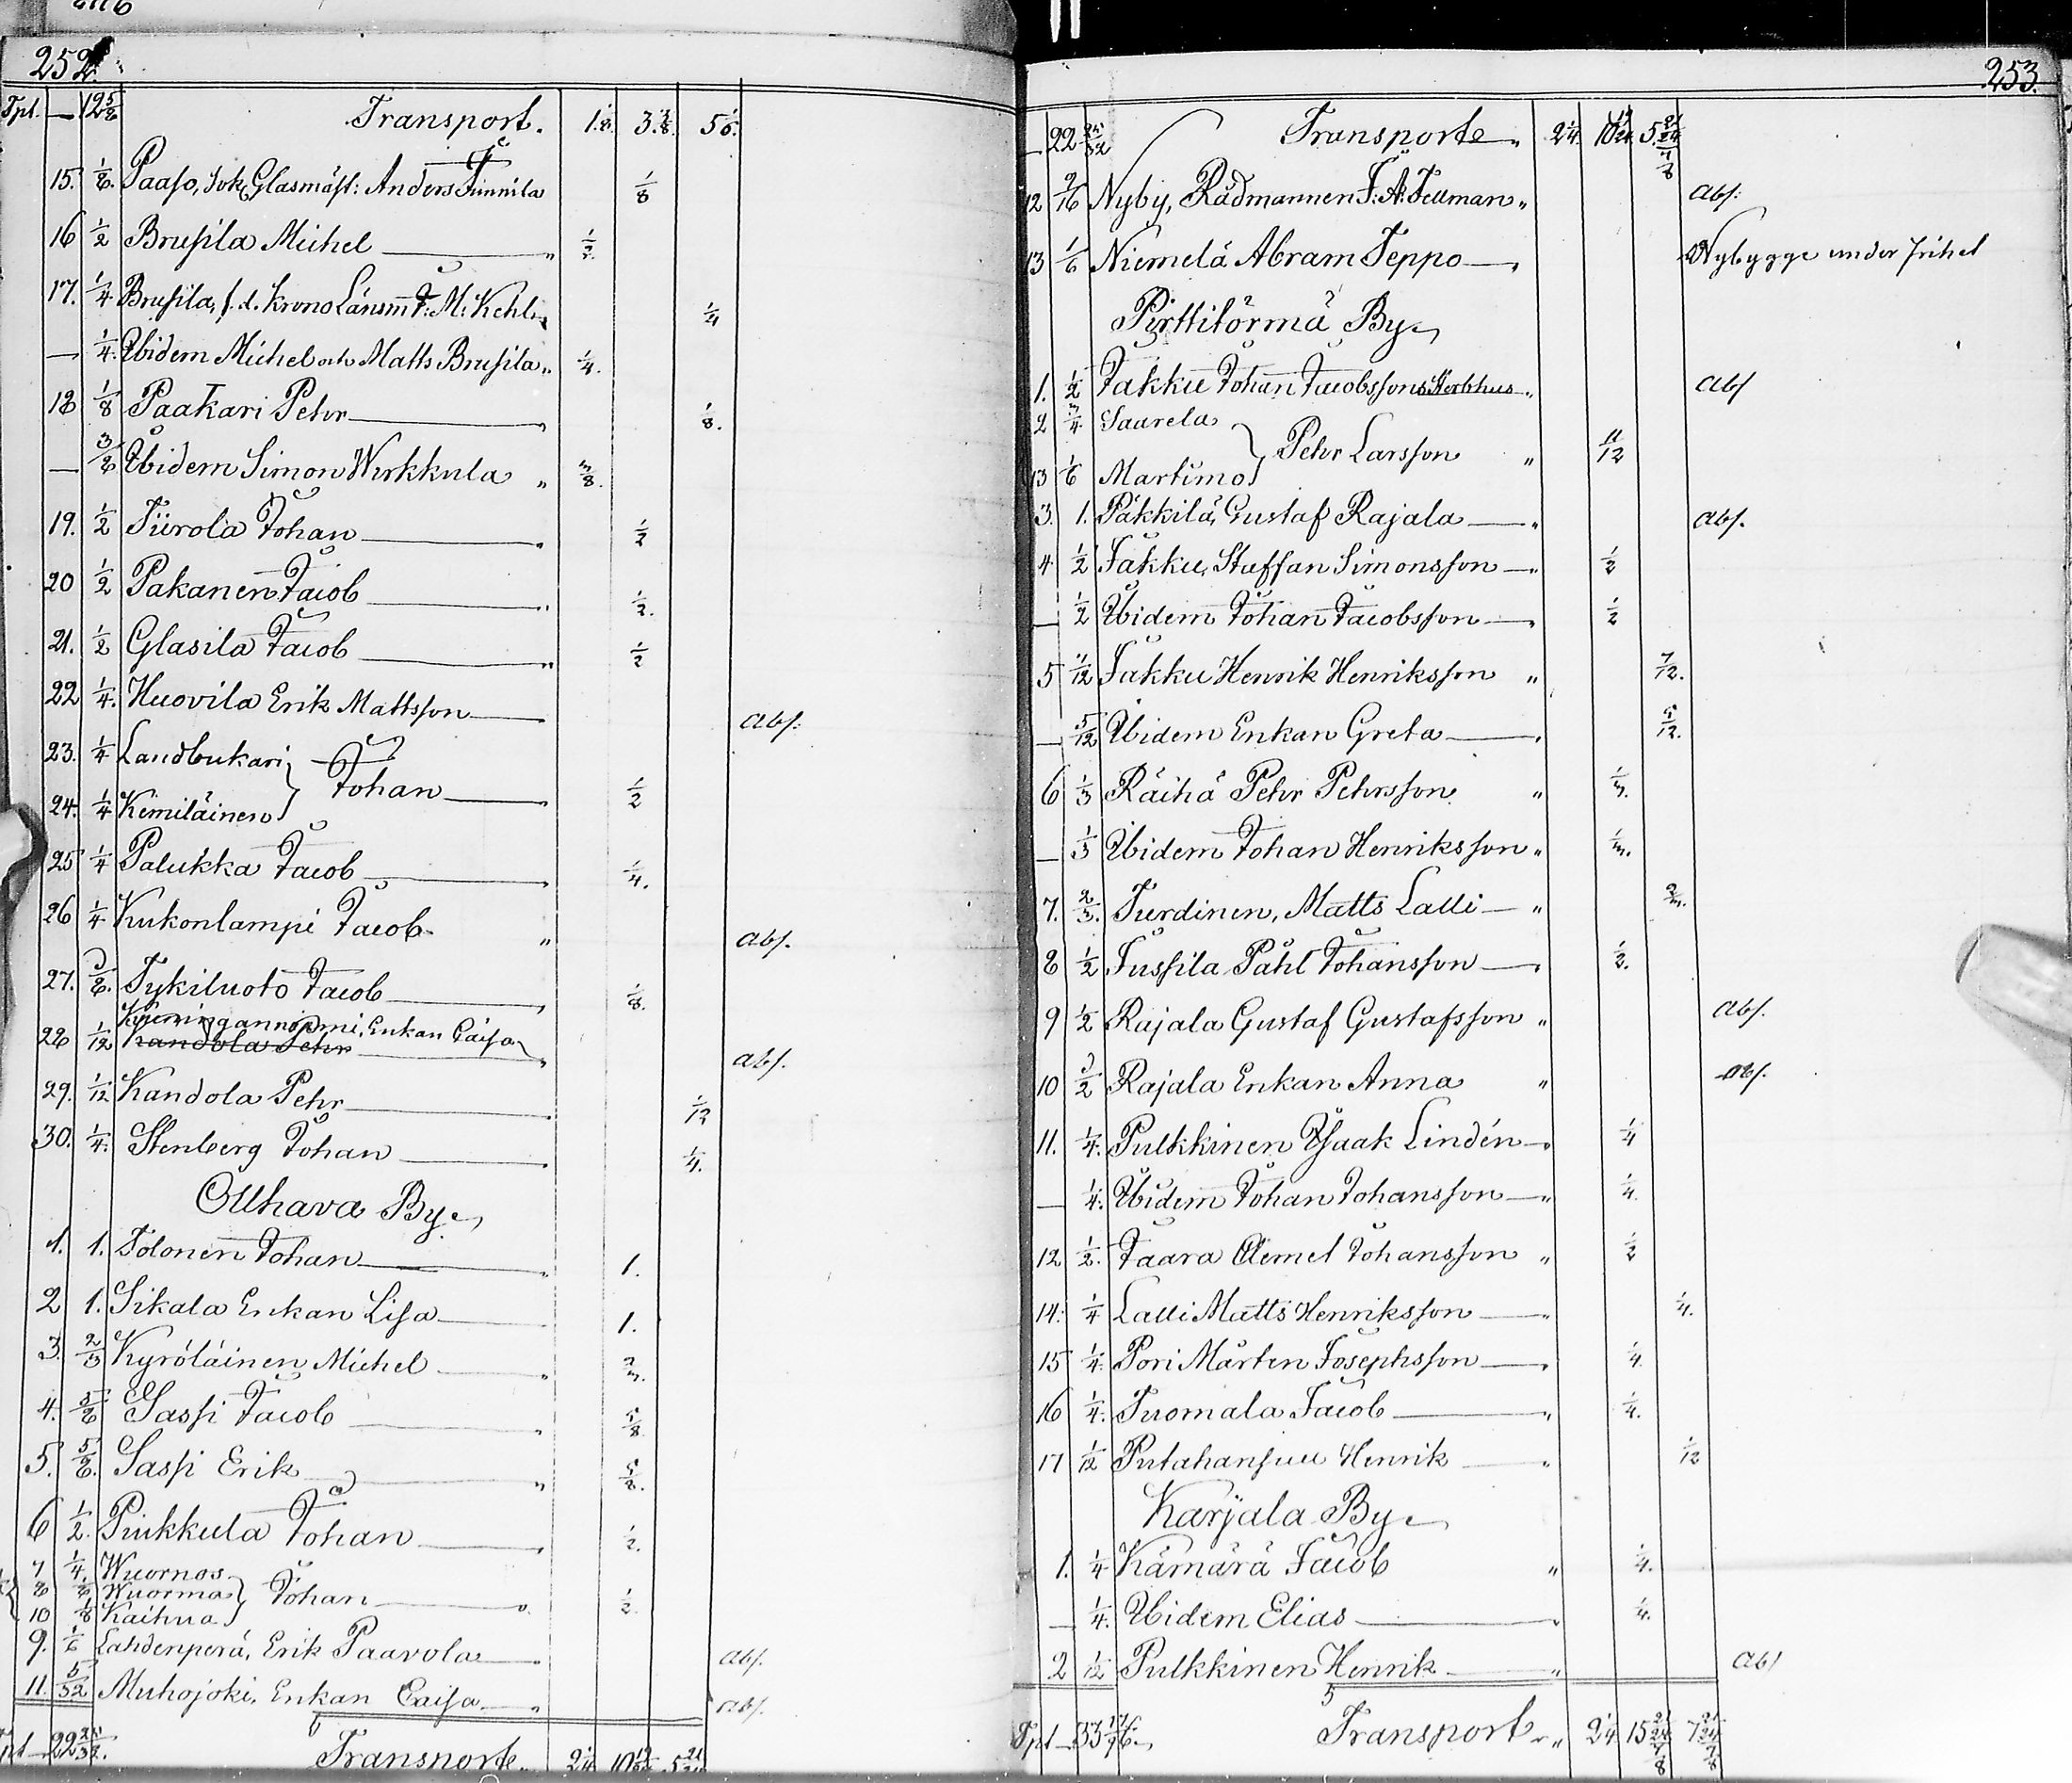 252.
Tpt. — 12 5/8 Transport. 1 1/8. 3 3/8. 5 1/6.
15. 1/8. Paaso, Glasmäst: Anders Finnilä 1/8
16 1/2 Brusila Michel — „ 1/2.
17. 1/4 Brusila, f.d. Krono Länsm J: M: Kehlin 1/4
— 1/4. Ibidem Michel och Matts Brusila „ 1/4.
18 1/8 Paakari Pehr — 1/8.
— 3/8 Ibidem Simon Wirkkula „ 3/8.
19. 1/2 Tiirola Johan — 1/2
20 1/2 Pakanen Jacob — 1/2.
21. 1/2 Glasila Jacob — 1/2
22 1/4. Huovila Erik Mattsson — abs:
23. 1/4 Landbukari
} Johan — 1/2
24. 1/4 Kemiläinen
25 1/4 Palukka Jacob — 1/4.
26 1/4 Kukonlampi Jacob „ abs.
27. 1/8. Tykiluoto Jacob — 1/8.
Kuninganniemi, Enkan Caisa
28 1/12 Kandola Pehr — abs.
29. 1/12 Kandola Pehr — 1/12
30. 1/4. Stenberg Johan — 1/4.
Olhava By.
1. 1. Tolonen Johan — 1.
2 1. Sikala Enkan Lisa — 1.
3. 2/3 Kyröläinen Michel — 2/3.
4. 5/8 Sassi Jacob — 5/8
5. 5/8. Sassi Erik — „ 5/8.
6 1/2. Pinkkula Johan — 1/2.
7 1/4. Wuornos
8 1/8 Wuorma } Johan — 1/2.
10 1/8 Kaihua
9. 1/6 Lahdenperä, Erik Paavola — abs.
11. 5/32 Muhojoki, Enkan Caisa — abs.
Tpt — 22 25/32. Transporte „ 2 1/4 10 5 21/24
253.
— 22 25/32 Transporte „ 2 1/4. 10 5 21/24 1/8
12 9/16 Nyby, Rådmannen J: A: Fellman „ abs:
13 1/6 Niemelä Abram Seppo — Nybygge under frihet
Pirttitörmä By
1. 1/2 Jakku Johan Jacobssons Sterbhus „ abs
2 3/4 Saarela
} Pehr Larsson „ 11/12
13 1/6 Martimo
3. 1. Päkkilä, Gustaf Rajala — „ abs.
4 1/2 Jakku, Staffan Simonsson — 1/2
— 1/2 Ibidem Johan Jacobsson — 1/2
5 7/12 Jakku Henrik Henriksson „ 7/12.
— 5/12 Ibidem Enkan Greta — 5/12.
6 1/3 Räihä Pehr Pehrsson „ 1/3.
— 1/3 Ibidem Johan Henriksson „ 1/3.
7. 2/3. Turdinen, Matts Lalli — „ 2/3.
8 1/2 Jussila Påhl Johansson — 1/2.
9 1/2 Rajala Gustaf Gustafsson „ abs.
10 1/2 Rajala Enkan Anna „ abs.
11. 1/4. Pulkkinen Isaak Lindén — 1/4
— 1/4. Ibidem Johan Johansson — „ 1/4.
12 1/2. Jaara Clemet Johansson „ 1/2
14. 1/4 Lalli Matts Henriksson — 1/4.
15 1/4. Pori Mårten Josephsson — 1/4.
16 1/4. Tuomala Jacob — 1/4.
17 1/12 Putahansuu Henrik — 1/12
Karjala By
1. 1/4 Kämärä Jacob „ 1/4.
— 1/4. Ibidem Elias — 1/4.
2 1/12 Pulkkinen Henrik — „ abs
Tpt — 33 Transport „ 2 1/4 15 21/24 1/8 7 21/24 1/8